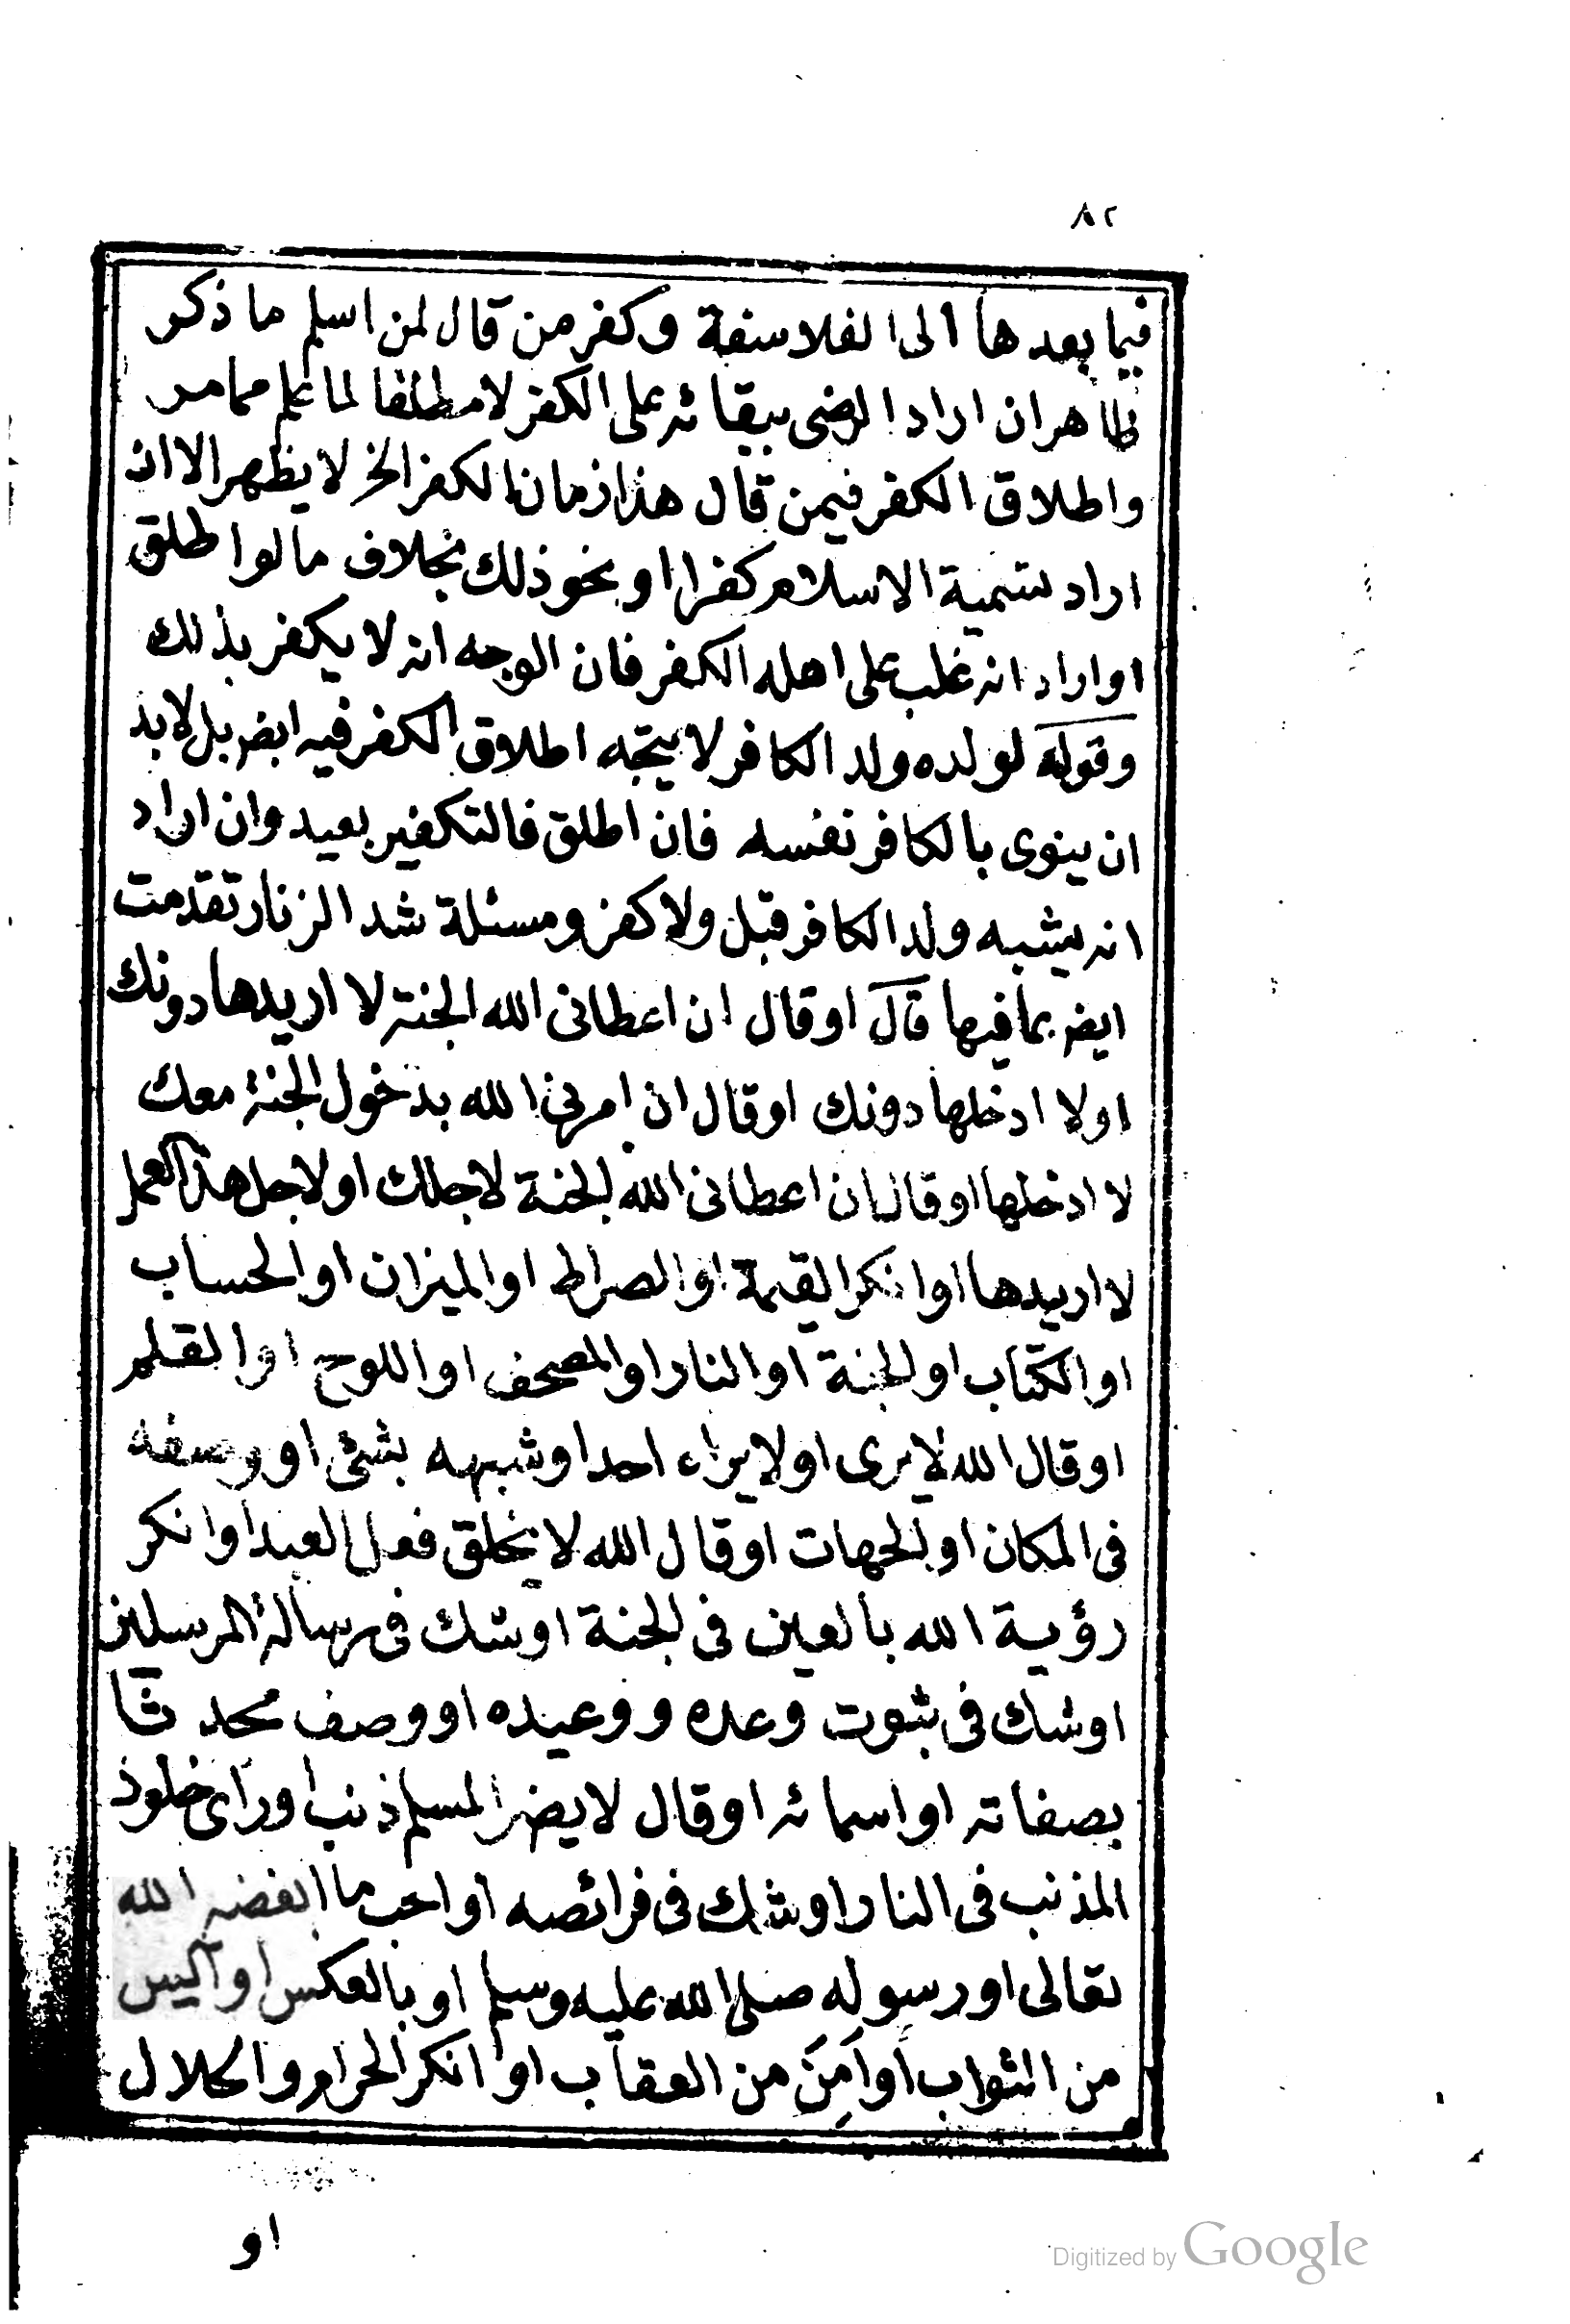 ٨٢
فيما بعدها الى الفلاسفة وكفر من قال لمن اسلم ما ذكر
ظاهر ان اراد الرضى ببقائه على الكفر لا مطلقا لما علم مما مر
واطلاق الكفر فيمن قال هذا زمان الكفر الخ لا يظهر الا ان
اراد تسمية الاسلام كفرا او نحو ذلك بخلاف ما لو اطلق
او اراد انه غلب على اهله الكفر فان الوجه انه لا يكفر بذلك
وقوله لولده ولد الكافر لا يتجه اطلاق الكفر فيه ايض بل لا بد
ان ينوى بالكافر نفسه فان اطلق فالتكفير بعيد وان اراد
انه يشبه ولد الكافر قبل ولا كفر ومسئلة شد الزنار تقدمت
ايض بما فيها قال او قال ان اعطانى الله الجنة لا اريدها دونك
او لا ادخلها دونك او قال ان امرنى الله بدخول الجنة معك
لا ادخلها او قال ان اعطانى الله الجنة لاجلك او لاجل هذا العمل
لا اريدها او انكر القيمة او الصراط او الميزان او الحساب
او الكتاب او الجنة او النار او المصحف او اللوح او القلم
او قال الله لا يرى او لا يراه احد او شبهه بشئ او وصفه
فى المكان او الجهات او قال الله لا يخلق فعل العبد او انكر
رؤية الله بالعين فى الجنة او شك فى رسالة المرسلين
او شك فى ثبوت وعده ووعيده او وصف محدثا
بصفاته او اسمائه او قال لا يضر المسلم ذنب او رآى خلود
المذنب فى النار او شك فى فرائضه او احب ما ابغضه الله
تعالى او رسوله صلى الله عليه وسلم او بالعكس او آيس
من الثواب أو أَمِنَ من العقاب او انكر الحرام والحلال
او
Digitized by Google